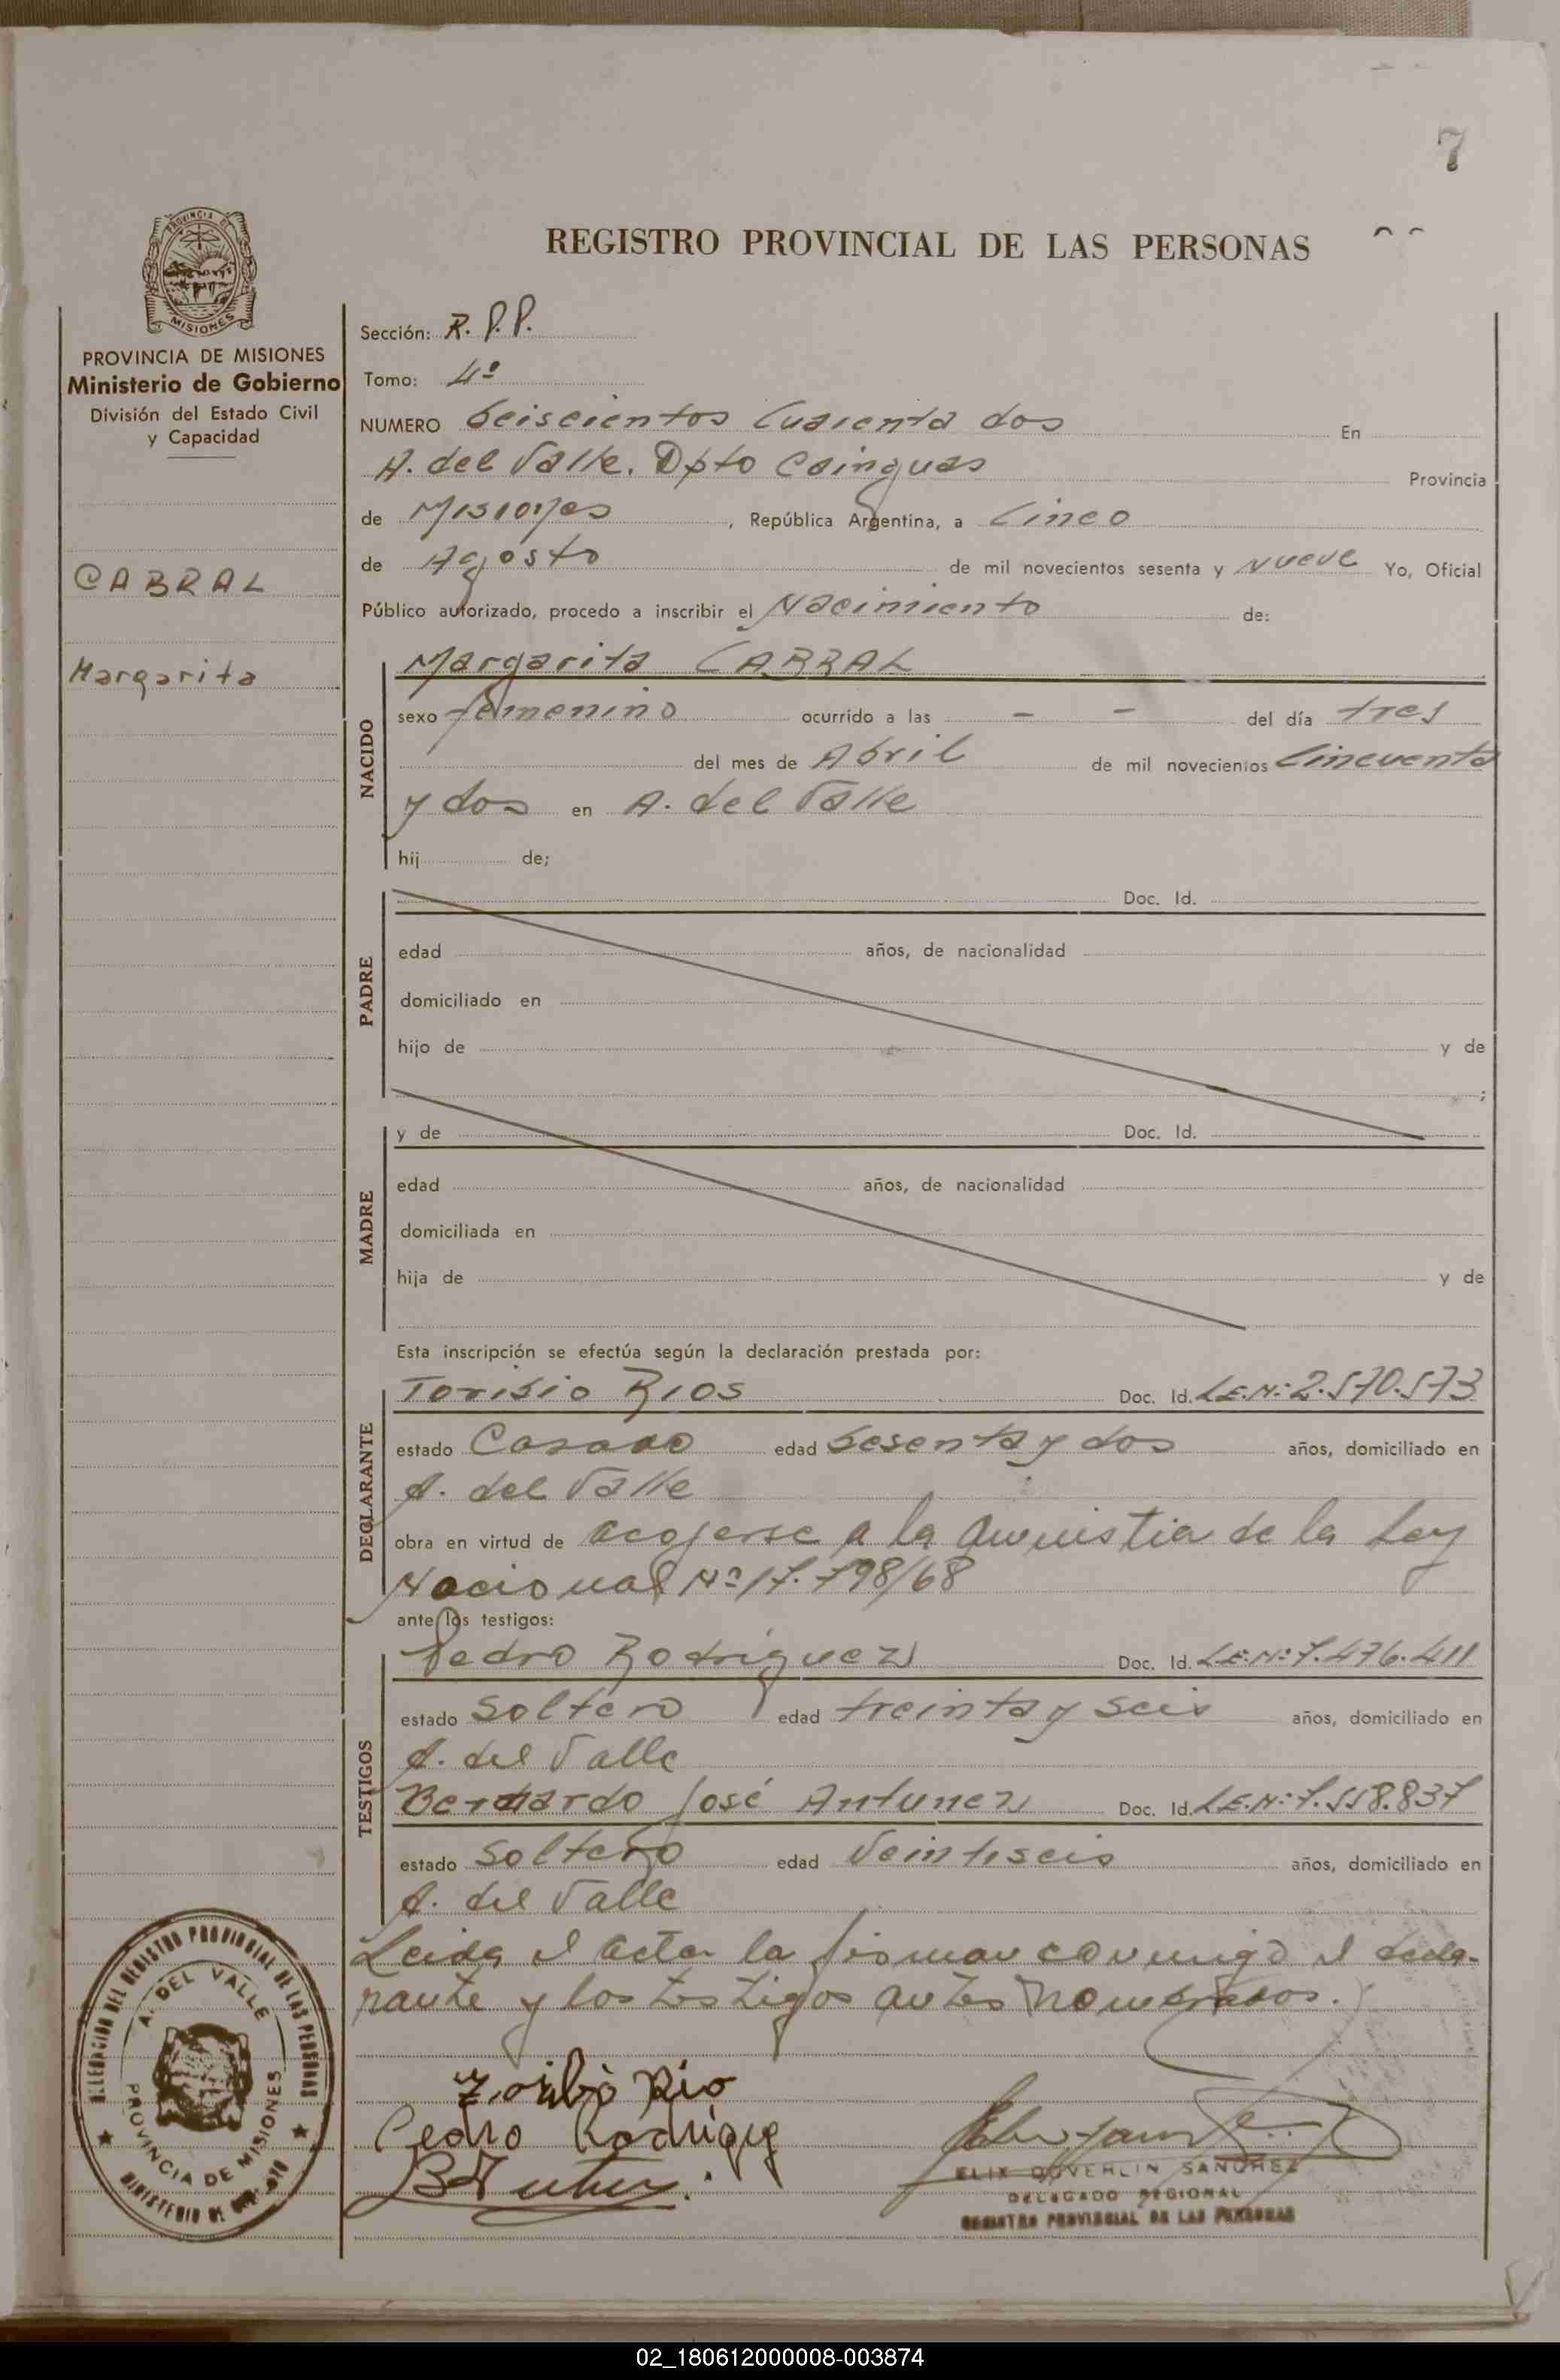 7
REGISTRO PROVINCIAL DE LAS PERSONAS
PROVINCIA DE MISIONES
PROVINCIA DE MISIONES
Ministerio de Gobierno
División del Estado Civil
y Capacidad
CABRAL
Margarita
Sección: R. P.P.
Tomo: 4º
NUMERO Seiscientos Cuarenta dos En
A. del Valle. Dpto Cainguas Provincia
de Misiones, República Argentina, a Cinco
de Agosto de mil novecientos sesenta y Nueve Yo, Oficial
Público autorizado, procedo a inscribir el Nacimiento de:
NACIDO
Margarita CABRAL
sexo femenino ocurrido a las - - del día tres
del mes de Abril de mil novecientos Cincuenta
y dos en A. del Valle
hij de;
PADRE
Doc. Id.
edad años, de nacionalidad
domiciliado en
hijo de y de
;
MADRE
y de Doc. Id.
edad años, de nacionalidad
domiciliada en
hija de y de
Esta inscripción se efectúa según la declaración prestada por:
DECLARANTE
Torisio Rios Doc. Id. L.E.Nº: 2.570.573
estado Casado edad Sesenta y dos años, domiciliado en
A. del Valle
obra en virtud de acojerse a la amnistia de la Ley
Nacional Nº 17.798/68
ante los testigos:
TESTIGOS
Pedro Rodriguez Doc. Id. L.E.Nº: 7.476.411
estado Soltero edad treinta y seis años, domiciliado en
A. del Valle
Bernardo José Antunez Doc. Id. L.E.Nº: 7.558.837
estado Soltero edad Veintiseis años, domiciliado en
A. del Valle
Leida el acta la firman conmigo el decla-
rante y los testigos antes nombrados.
DELEGACION DEL REGISTRO PROVINCIAL DE LAS PERSONAS
A. DEL VALLE
PROVINCIA DE MISIONES
MINISTERIO DE
Pedro Rodrigez
SANCHEZ
DELEGADO REGIONAL
REGISTRO PROVINCIAL DE LAS PERSONAS
02_180612000008-003874